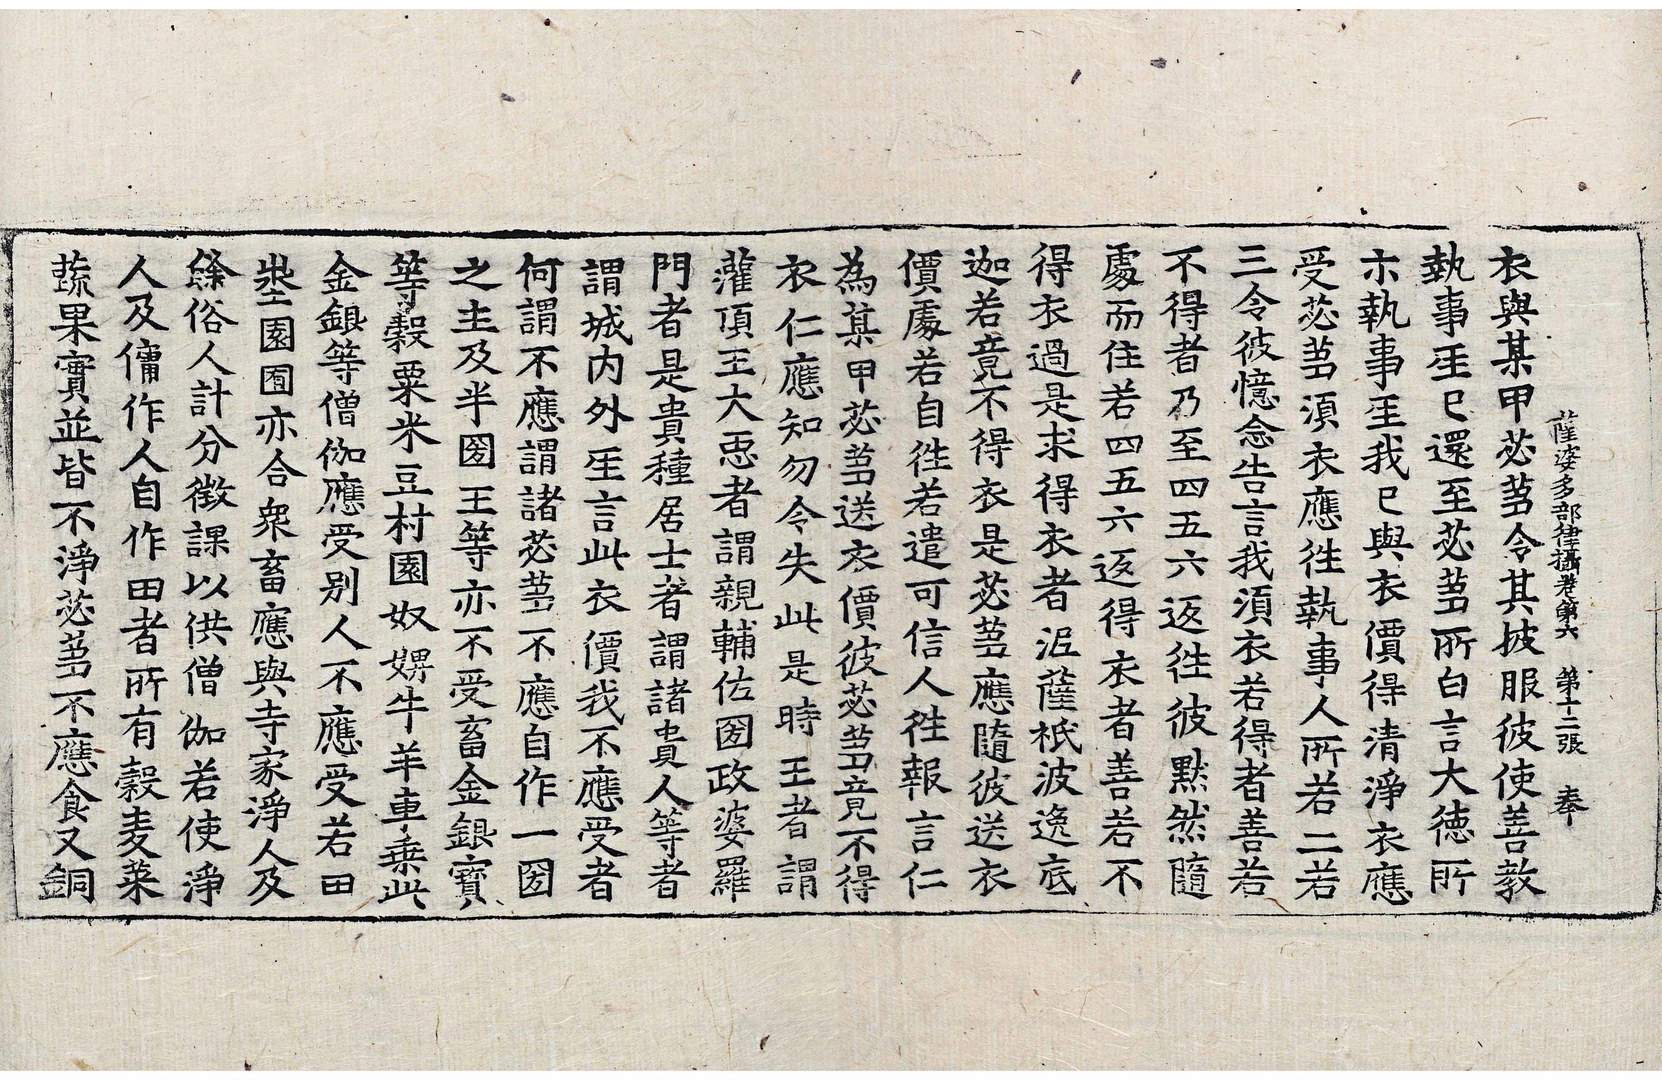 薩婆多部律攝卷第六　第十二張　奉
衣與某甲苾芻令其披服彼使善教
執事𤯔已還至苾芻所白言大德所
示執事𤯔我已與衣價得清淨衣應
受苾芻須衣應往執事人所若二若
三令彼憶念告言我須衣若得者善若
不得者乃至四五六返往彼默然隨
處而住若四五六返得衣者善若不
得衣過是求得衣者泥薩祇波逸底
迦若竟不得衣是苾芻應隨彼送衣
價處若自往若遣可信人往報言仁
為某甲苾芻送衣價彼苾芻竟不得
衣仁應知勿令失此是時王者謂
灌頂王大𢘑者謂親輔佐圀政婆羅
門者是貴種居士者謂諸貴人等者
謂城内外𤯔言此衣價我不應受者
何謂不應謂諸苾芻不應自作一圀
之主及半圀王等亦不受畜金銀寶
等穀粟米豆村園奴婢牛羊車乘此
金銀等僧伽應受別人不應受若田
埊園囿亦合衆畜應與寺家淨人及
餘俗人計分徵課以供僧伽若使淨
人及傭作人自作田者所有穀麦菜
蔬果實並皆不淨苾芻不應食又銅